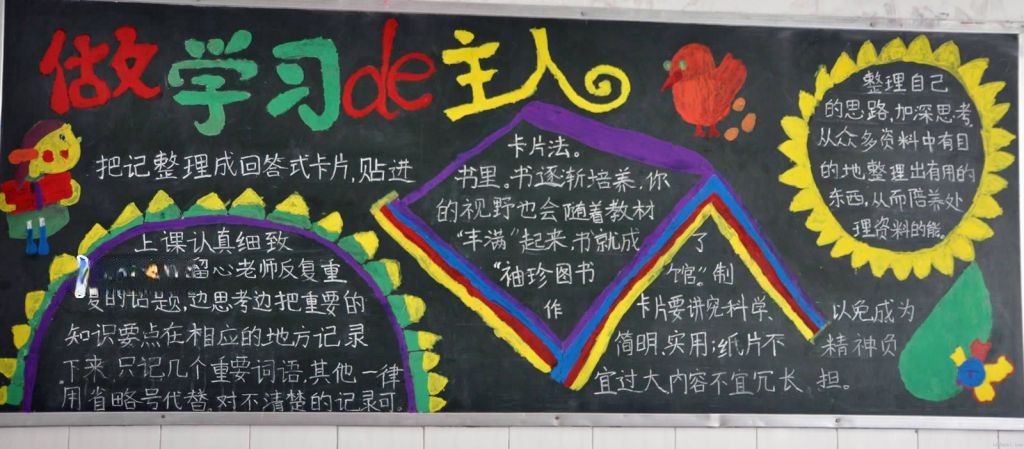 做学习de主人
上课认真细致
留心老师反复重
复的话题,边思考边把重要的
知识要点在相应的地方记录
下来,只记几个重要词语,其他一律
用省略号代替,对不清楚的记录可
卡片法。
把记整理成回答式卡片,贴进
书里。书逐渐培养,你
的视野也会随着教材
“丰满”起来,书就成 了
“袖珍图书 馆”。制
作 卡片要讲究科学、 以免成为
简明、实用;纸片不 精神负
宜过大,内容不宜冗长, 担。
整理自己
的思路,加深思考,
从众多资料中有目
的地整理出有用的
东西,从而陪养处
理资料的能。